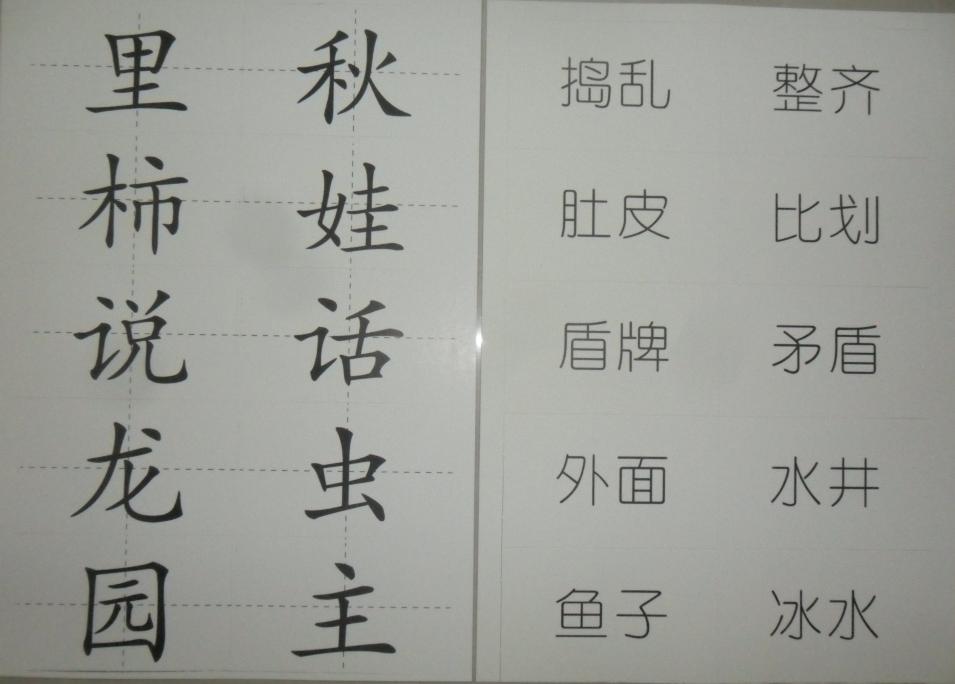 里 秋
柿 娃
说 话
龙 虫
园 主
捣乱 整齐
肚皮 比划
盾牌 矛盾
外面 水井
鱼子 冰水